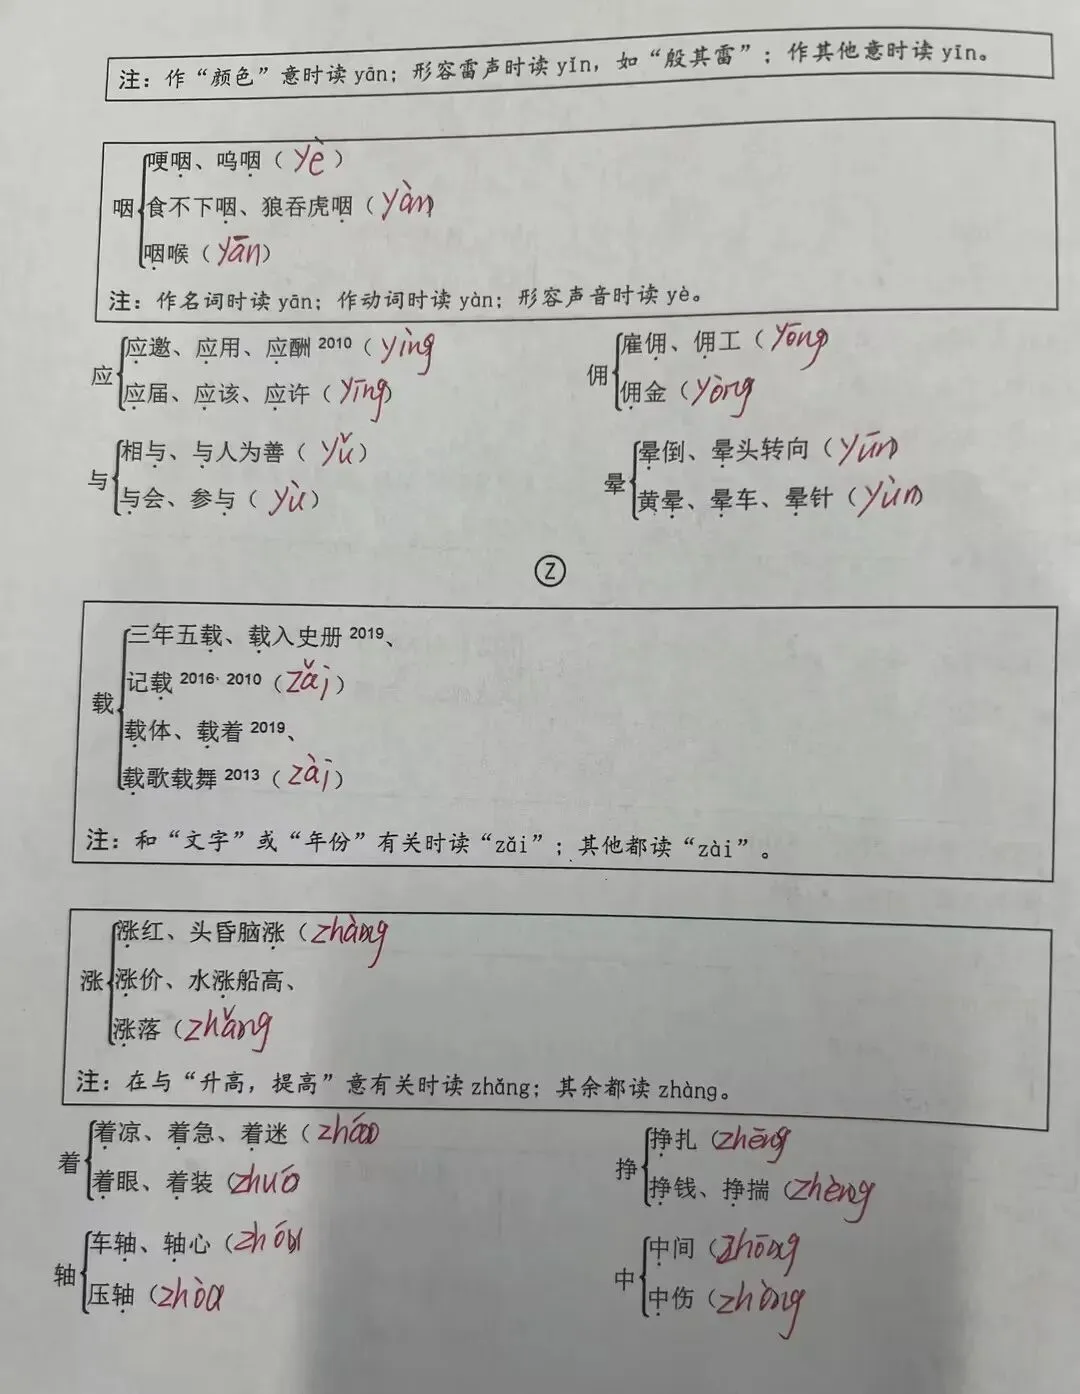 注：作“颜色”意时读 yān；形容雷声时读 yǐn，如“殷其雷”；作其他意时读 yīn。
咽
哽咽、呜咽（yè）
食不下咽、狼吞虎咽（yàn）
咽喉（yān）
注：作名词时读 yān；作动词时读 yàn；形容声音时读 yè。
应
应邀、应用、应酬 2010（yìng
应届、应该、应许（yīng）
佣
雇佣、佣工（yōng）
佣金（yòng
与
相与、与人为善（yǔ）
与会、参与（yù）
晕
晕倒、晕头转向（yūn）
黄晕、晕车、晕针（yùn）
Z
载
三年五载、载入史册 2019、
记载 2016· 2010（zǎi）
载体、载着 2019、
载歌载舞 2013（zài）
注：和“文字”或“年份”有关时读“zǎi”；其他都读“zài”。
涨
涨红、头昏脑涨（zhàng
涨价、水涨船高、
涨落（zhǎng
注：在与“升高，提高”意有关时读 zhǎng；其余都读 zhàng。
着
着凉、着急、着迷（zháo
着眼、着装（zhuó
挣
挣扎（zhēng
挣钱、挣揣（zhèng
轴
车轴、轴心（zhóu
压轴（zhòu
中
中间（zhōng
中伤（zhòng